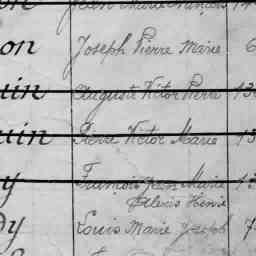 on Joseph Pierre Marie 6
uin Auguste Victor Pierre 13
uin Pierre Victor Marie 13
y François Jean Marie 13
Alexis Henri
dy Louis Marie Joseph 7